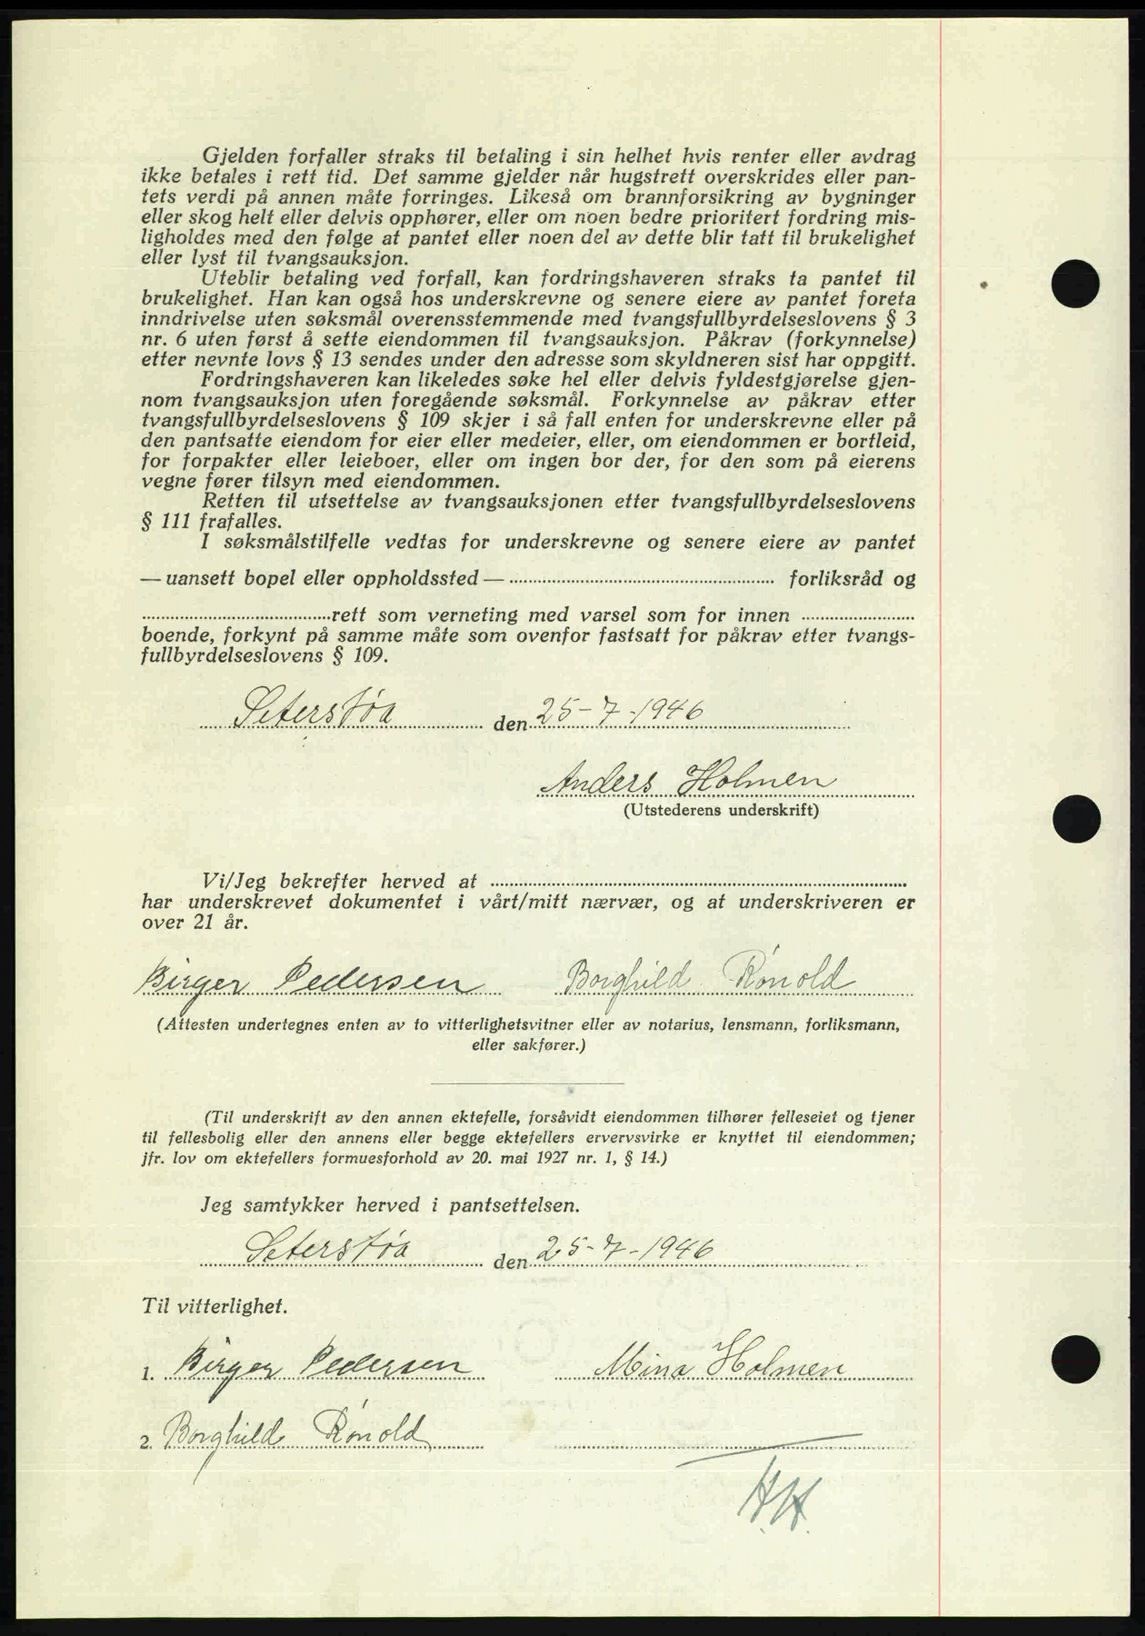 Gjelden forfaller straks til betaling i sin helhet hvis renter eller avdrag
ikke betales i rett tid. Det samme gjelder når hugstrett overskrides eller pan-
tets verdi på annen måte forringes. Likeså om brannforsikring av bygninger
eller skog helt eller delvis opphører, eller om noen bedre prioritert fordring mis-
ligholdes med den følge at pantet eller noen del av dette blir tatt til brukelighet
eller lyst til tvangsauksjon.
Uteblir betaling ved forfall, kan fordringshaveren straks ta pantet til
brukelighet. Han kan også hos underskrevne og senere eiere av pantet foreta
inndrivelse uten søksmål overensstemmende med tvangsfullbyrdelseslovens § 3
nr. 6 uten først å sette eiendommen til tvangsauksjon. Påkrav (forkynnelse)
etter nevnte lovs § 13 sendes under den adresse som skyldneren sist har oppgitt.
Fordringshaveren kan likeledes søke hel eller delvis fyldestgjørelse gjen-
nom tvangsauksjon uten foregående søksmål. Forkynnelse av påkrav etter
tvangsfullbyrdelseslovens § 109 skjer i så fall enten for underskrevne eller på
den pantsatte eiendom for eier eller medeier, eller, om eiendommen er bortleid,
for forpakter eller leieboer, eller om ingen bor der, for den som på eierens
vegne fører tilsyn med eiendommen.
Retten til utsettelse av tvangsauksjonen etter tvangsfullbyrdelseslovens
§ 111 frafalles.
I søksmålstilfelle vedtas for underskrevne og senere eiere av pantet
— uansett bopel eller oppholdssted — ........ forliksråd og
........ rett som verneting med varsel som for innen ........
boende, forkynt på samme måte som ovenfor fastsatt for påkrav etter tvangs-
fullbyrdelseslovens § 109.
Seterstøa den 25-7-1946
Anders Holmen
(Utstederens underskrift)
Vi/Jeg bekrefter herved at ........
har underskrevet dokumentet i vårt/mitt nærvær, og at underskriveren er
over 21 år.
Birger Pedersen Borghild Rønold
(Attesten undertegnes enten av to vitterlighetsvitner eller av notarius, lensmann, forliksmann,
eller sakfører.)
(Til underskrift av den annen ektefelle, forsåvidt eiendommen tilhører felleseiet og tjener
til fellesbolig eller den annens eller begge ektefellers ervervsvirke er knyttet til eiendommen;
jfr. lov om ektefellers formuesforhold av 20. mai 1927 nr. 1, § 14.)
Jeg samtykker herved i pantsettelsen.
Seterstøa den 25-7-1946
Til vitterlighet.
1. Birger Pedersen Mina Holmen
2. Borghild Rønold
H.H.